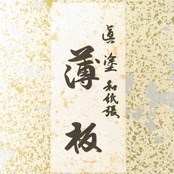 眞塗 和紙張
薄板